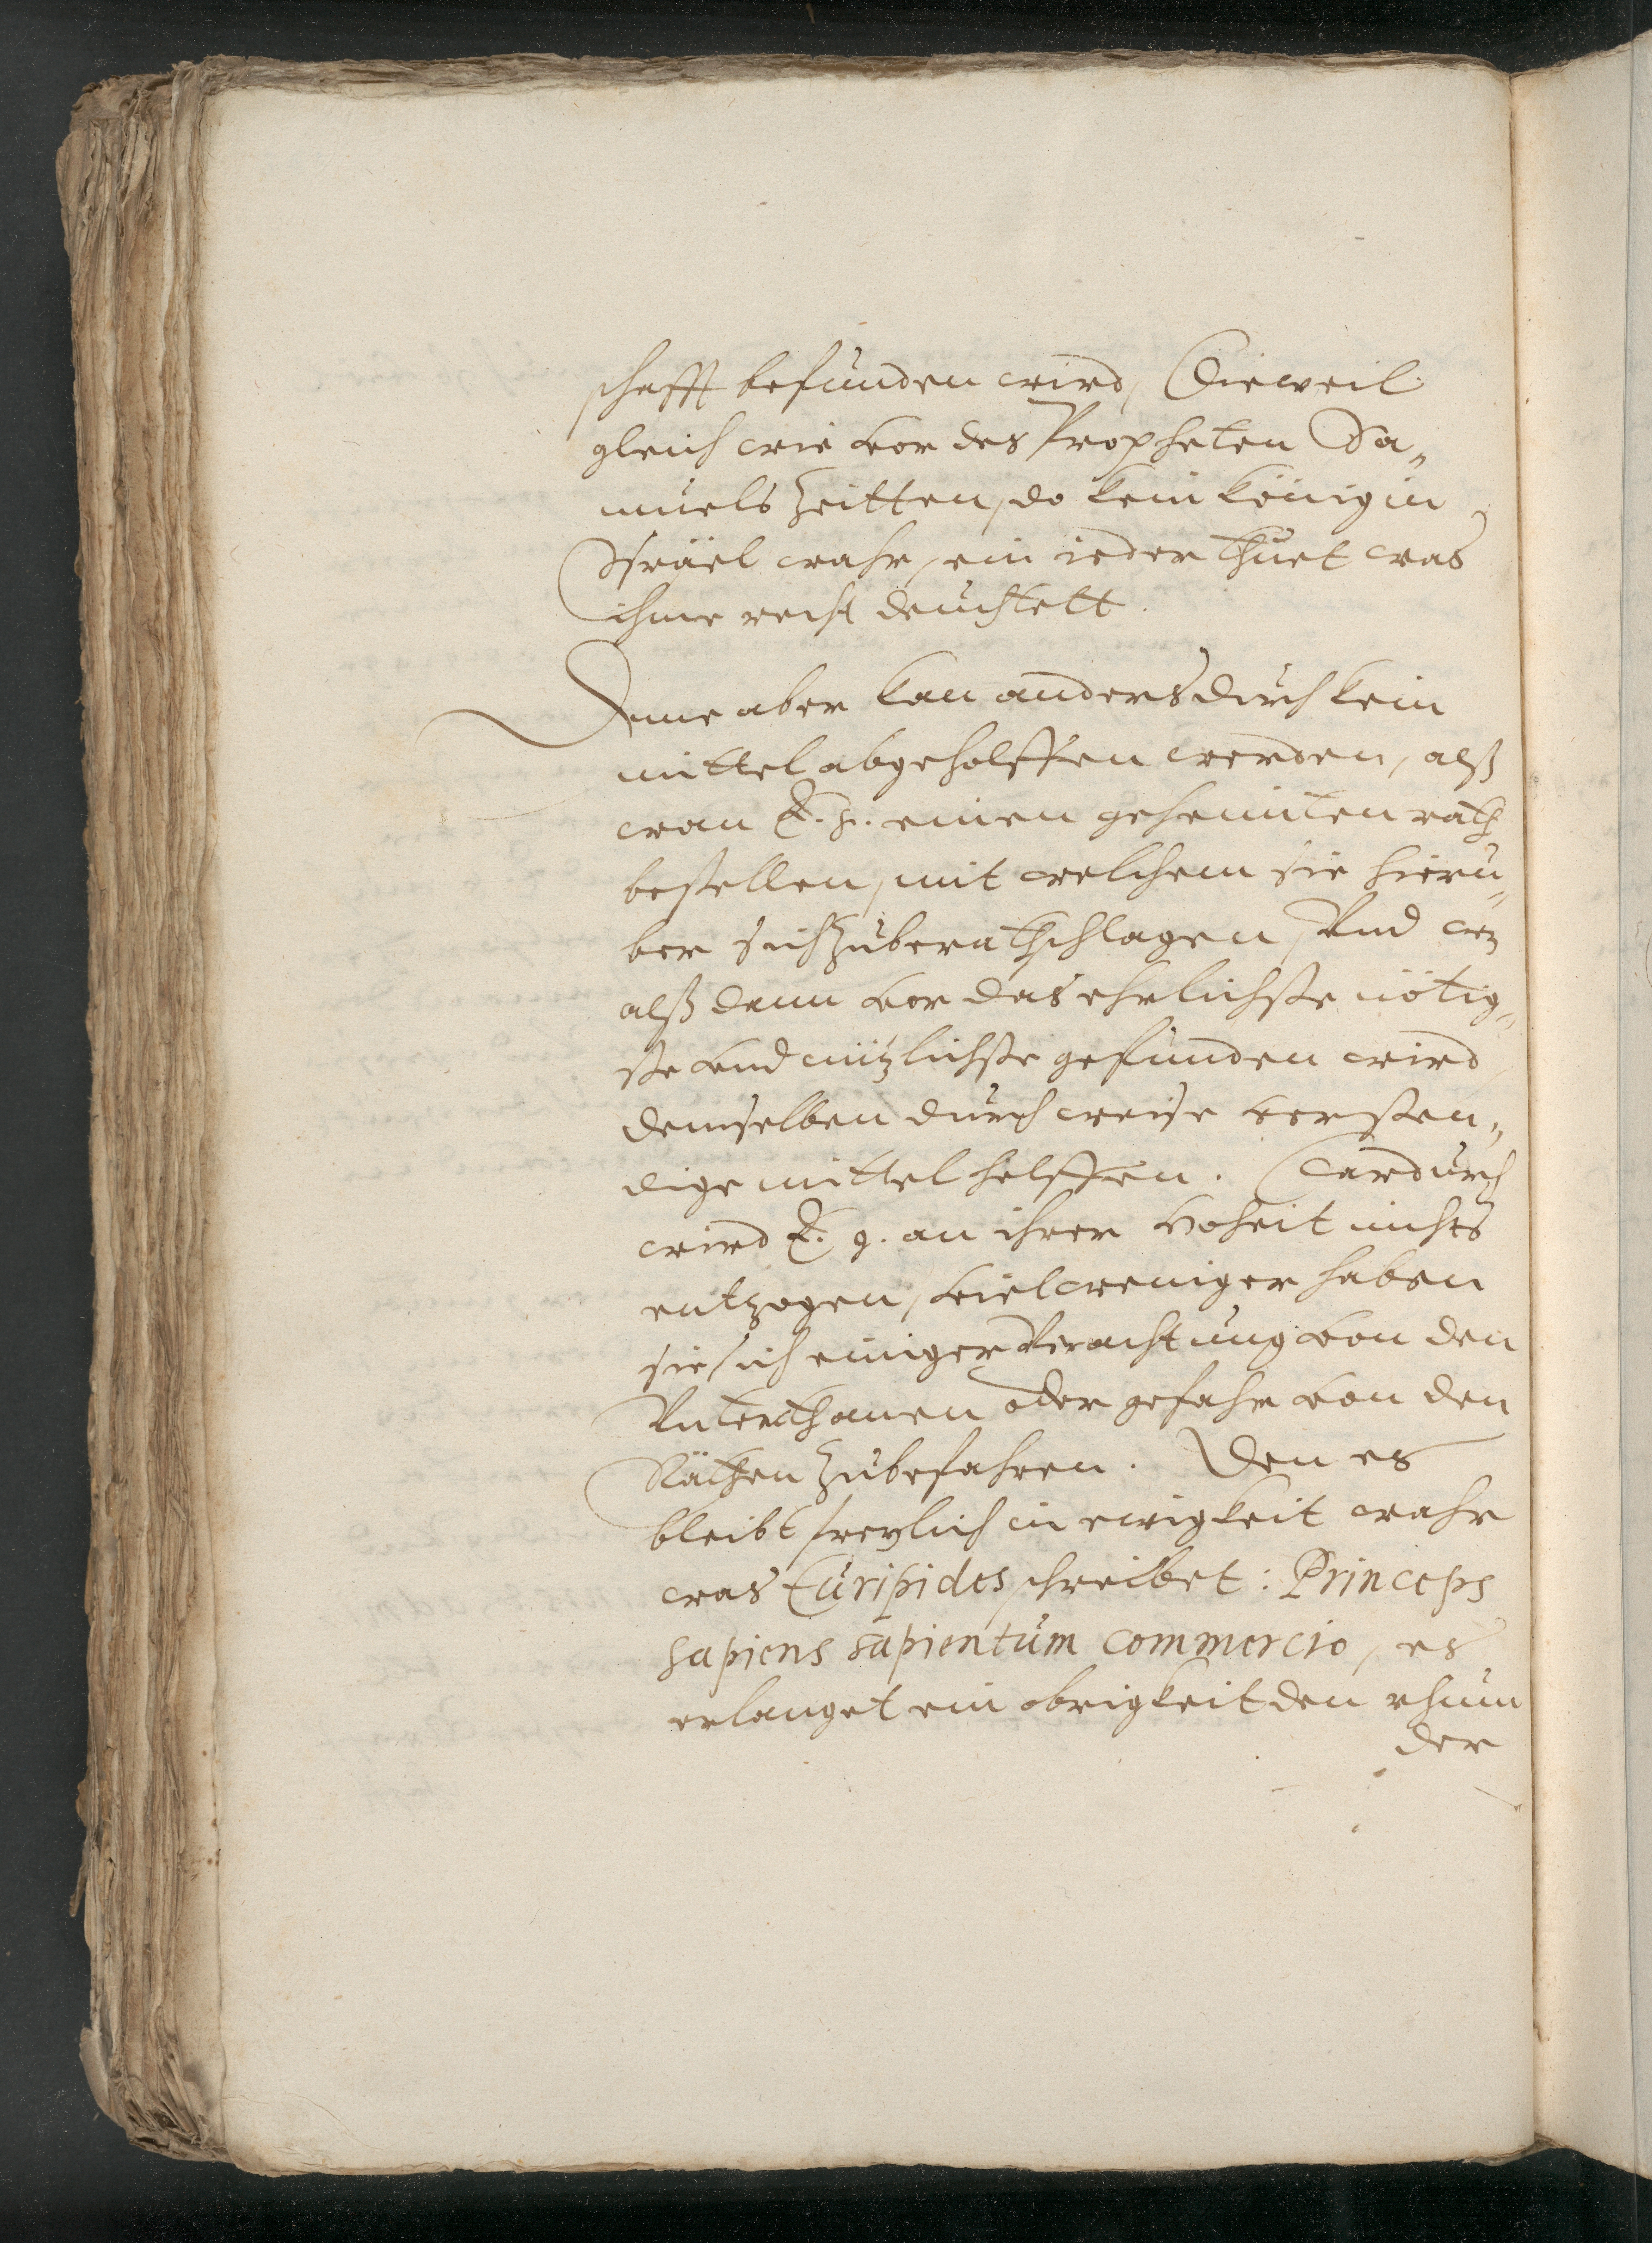 schafft befunden wird, Dieweil
gleich wie vor des Propheten Sa„
muels Zeitten, do kein König in
Israel wahr, ein ieder thuet was
ihme recht deuchtett.
Deme aber kan anders durch kein
mittel abgeholffen werden, alß
wan E. g. einen geheimten rath
bestellen, mit welchem sie hierü„
ber sich zuberathschlagen, Vnd wz
alß dann vor das ehrlichste nötig„
ste vnd nützlichste gefunden wird
demselben durch weise versten„
dige mittel helffen. Dardurch
wird E. g. an ihrer Hoheit nichts
entzogen, vielweniger haben
sie sich einiger Verachtung von den
Vnterthanen oder gefahr von den
Räthen zubefahren. Den es
bleibt freylich in ewigkeit wahr
was Euripides schreibet: Princeps
sapiens sapientum commercio, es
erlanget ein obrigkeit den rhum
der